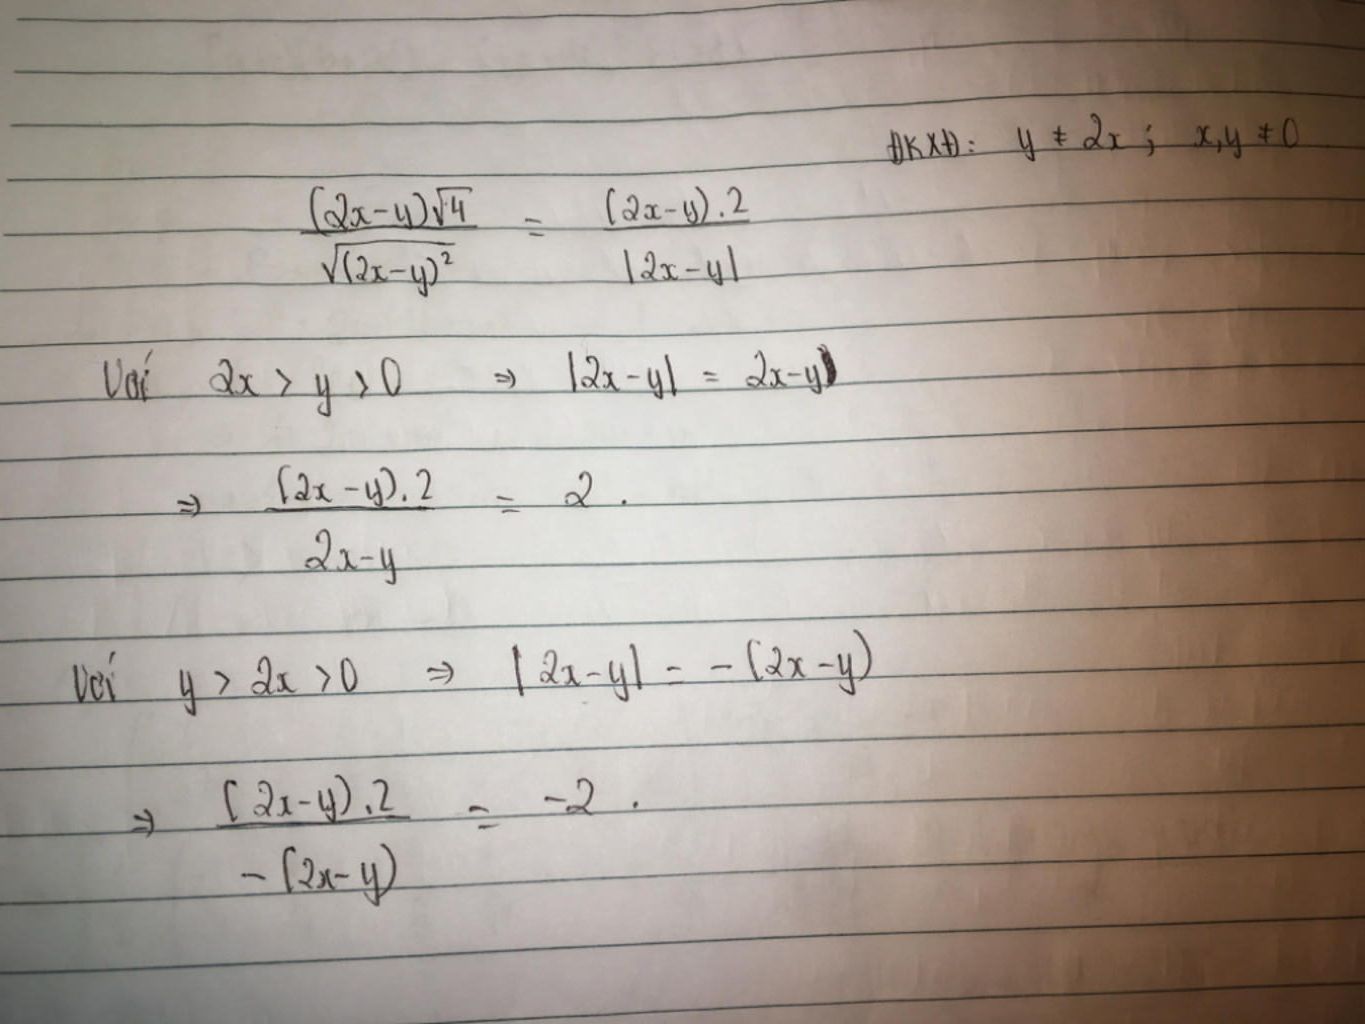 ĐKXĐ: y ≠ 2x ; x,y ≠ 0
(2x-y)√4 / √(2x-y)² = (2x-y).2 / |2x-y|
Với 2x > y > 0 ⇒ |2x-y| = 2x-y
⇒ (2x-y).2 / 2x-y = 2.
Với y > 2x > 0 ⇒ |2x-y| = -(2x-y)
⇒ (2x-y).2 / -(2x-y) = -2.